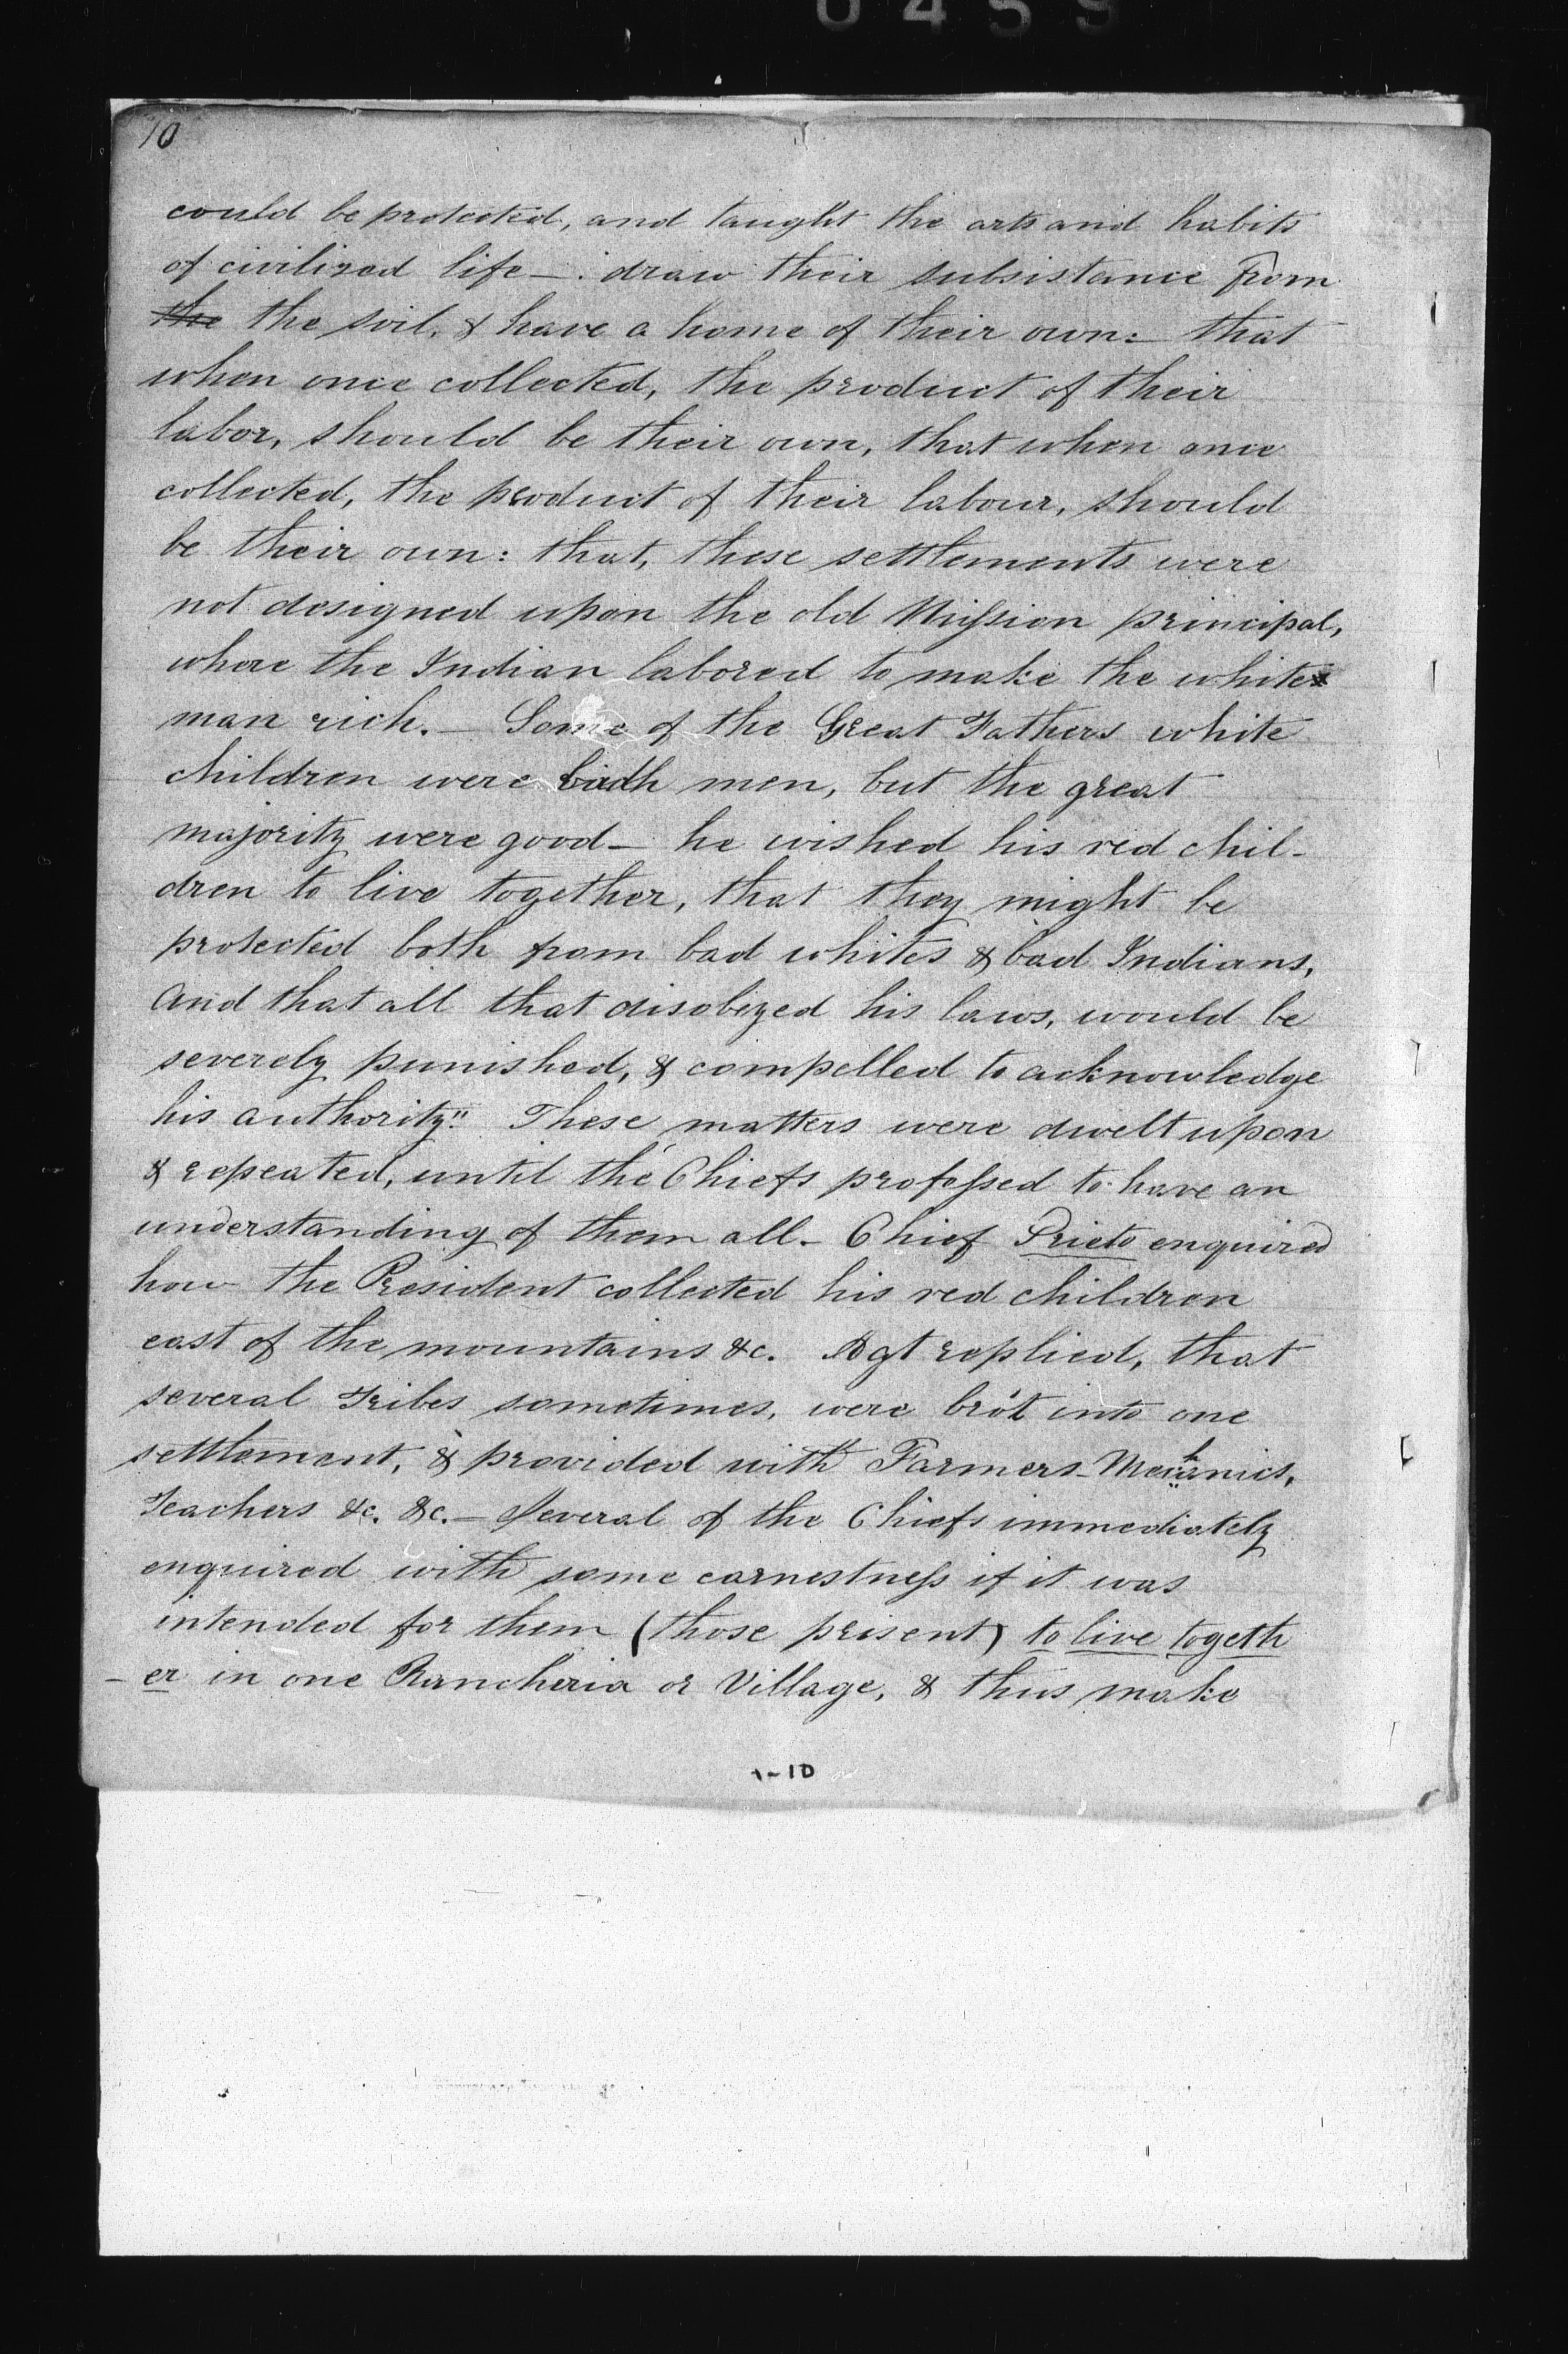 0459
10
could be protected, and taught the arts and habits
of civilized life —: draw their subsistance from
the the soil, & have a home of their own: — that
when once collected, the product of their
labor, should be their own, that when once
collected, the product of their labour, should
be their own: that, these settlements were
not designed upon the old Mission principal,
where the Indian labored to make the white
man rich. — Some of the Great Fathers white
children were bad men, but the great
majority were good — he wished his red chil-
dren to live together, that they might be
protected both from bad whites & bad Indians,
and that all that disobeyed his laws, would be
severely punished, & compelled to acknowledge
his authority." These matters were dwelt upon
& repeated, until the Chiefs professed to have an
understanding of them all — Chief Prieto enquired
how the President collected his red children
east of the mountains &c. Agt replied, that
several Tribes sometimes, were bro't into one
settlement, & provided with Farmers — Mechanics,
Teachers &c. &c. — Several of the Chiefs immediately
enquired with some earnestness if it was
intended for them (those prisent) to live togeth
- er in one Rancheria or Village, & thus make
1-10